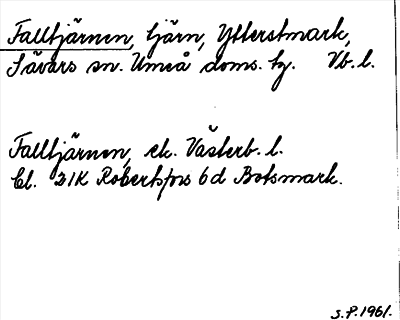 Falltjärnen, tjärn, Ytterstmark,
Sävars sn. Umeå doms. hg. Vb. l.
Falltjärnen, ek. Västerb. l.
Bl. 21K Robertsfors 6d Botsmark.
S.P.1961.